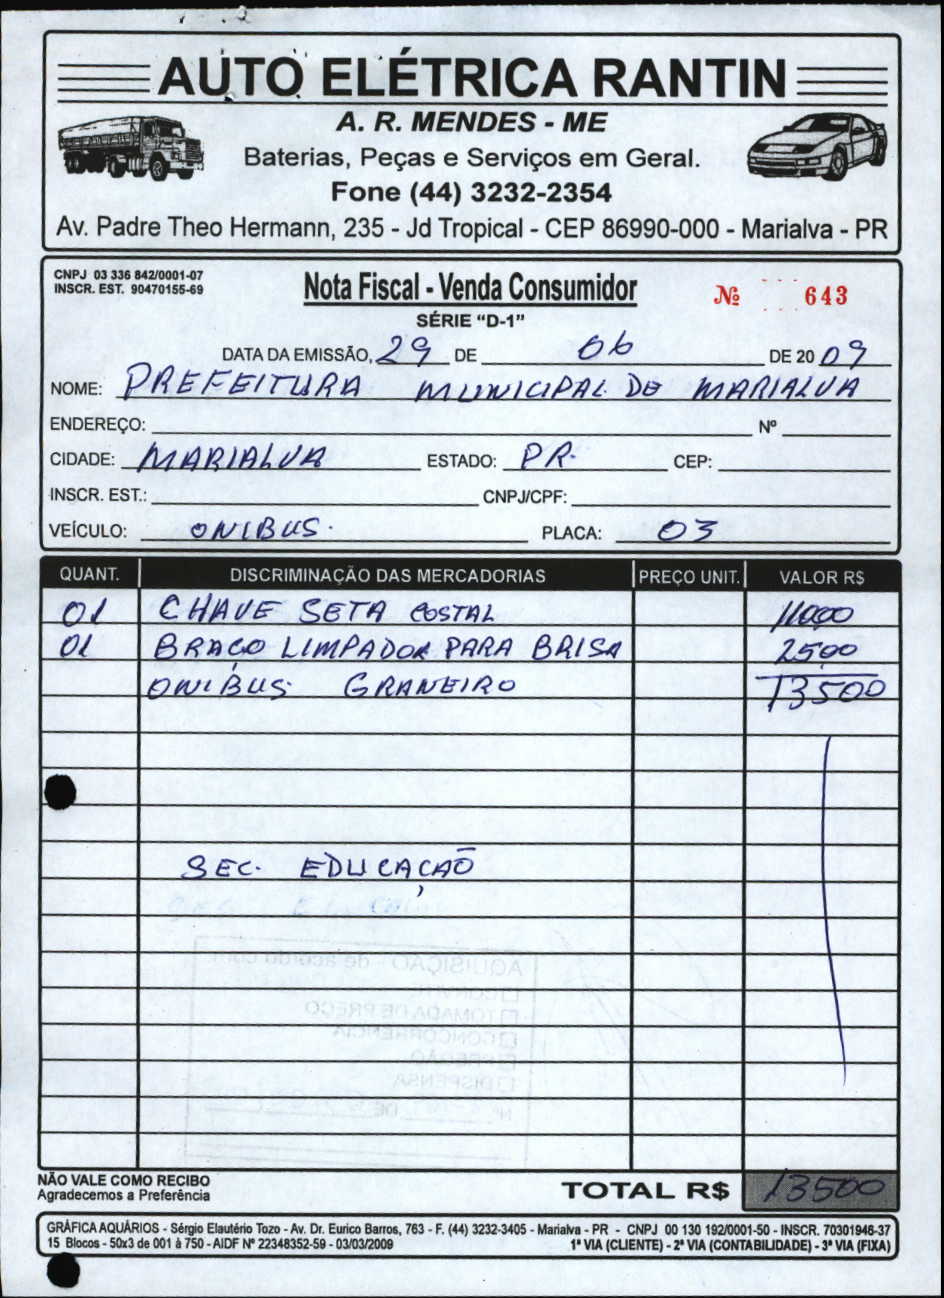 AUTO ELÉTRICA RANTIN
A. R. MENDES - ME
Baterias, Peças e Serviços em Geral.
Fone (44) 3232-2354
Av. Padre Theo Hermann, 235 - Jd Tropical - CEP 86990-000 - Marialva - PR
CNPJ 03 336 842/0001-07
INSCR. EST. 90470155-69
Nota Fiscal - Venda Consumidor
Nº 643
SÉRIE "D-1"
DATA DA EMISSÃO, 29 DE 06 DE 2009
NOME: PREFEITURA MUNICIPAL DE MARIALVA
ENDEREÇO: Nº
CIDADE: MARIALVA ESTADO: PR. CEP:
INSCR. EST.: CNPJ/CPF:
VEÍCULO: ONIBUS. PLACA: 03
QUANT. DISCRIMINAÇÃO DAS MERCADORIAS PREÇO UNIT. VALOR R$
01 CHAVE SETA COSTAL 11000
01 BRAÇO LIMPADOR PARA BRISA 2500
ONIBUS GRANEIRO 13500
SEC. EDUCAÇÃO
AQUISIÇÃO - de acordo com:
TOMADA DE PREÇO
CONCORRÊNCIA
PREGÃO
DISPENSA
Nº DE
NÃO VALE COMO RECIBO
Agradecemos a Preferência
TOTAL R$ 13500
GRÁFICA AQUÁRIOS - Sérgio Elautério Tozo - Av. Dr. Eurico Barros, 763 - F. (44) 3232-3405 - Marialva - PR - CNPJ 00 130 192/0001-50 - INSCR. 70301946-37
15 Blocos - 50x3 de 001 à 750 - AIDF Nº 22348352-59 - 03/03/2009 1ª VIA (CLIENTE) - 2ª VIA (CONTABILIDADE) - 3ª VIA (FIXA)